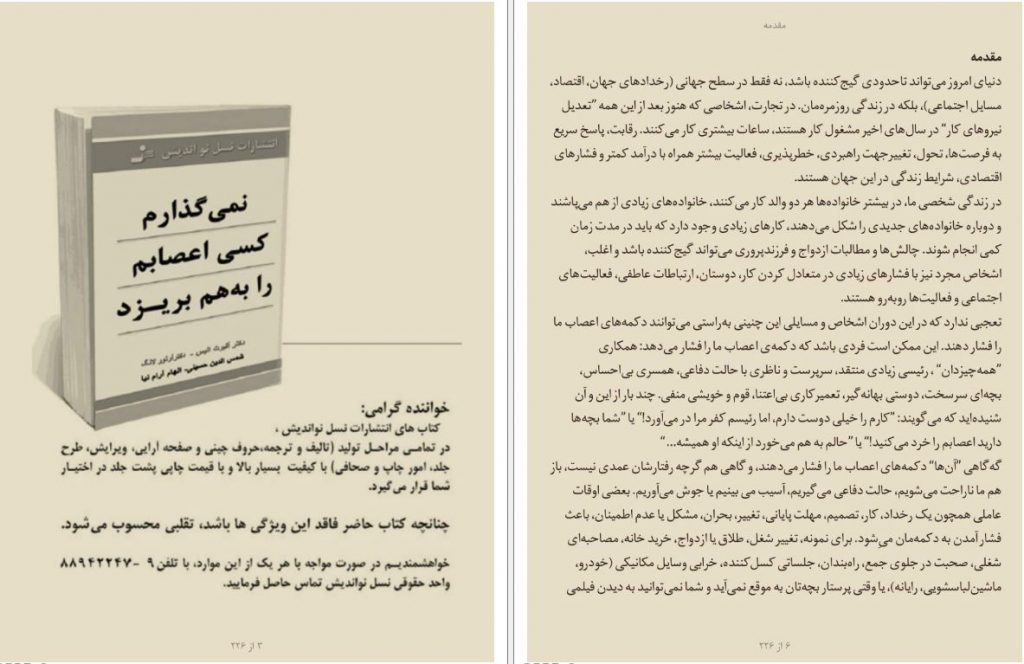 مقدمه
مقدمه
دنیای امروز می‌تواند تاحدودی گیج‌کننده باشد، نه فقط در سطح جهانی (رخدادهای جهان، اقتصاد،
مسایل اجتماعی)، بلکه در زندگی روزمره‌مان. در تجارت، اشخاصی که هنوز بعد از این همه “تعدیل
نیروهای کار” در سال‌های اخیر مشغول کار هستند، ساعات بیشتری کار می‌کنند. رقابت، پاسخ سریع
به فرصت‌ها، تحول، تغییرجهت راهبردی، خطرپذیری، فعالیت بیشتر همراه با درآمد کمتر و فشارهای
اقتصادی، شرایط زندگی در این جهان هستند.
در زندگی شخصی ما، در بیشتر خانواده‌ها هر دو والد کار می‌کنند، خانواده‌های زیادی از هم می‌پاشند
و دوباره خانواده‌های جدیدی را شکل می‌دهند، کارهای زیادی وجود دارد که باید در مدت زمان
کمی انجام شوند. چالش‌ها و مطالبات ازدواج و فرزندپروری می‌تواند گیج‌کننده باشد و اغلب،
اشخاص مجرد نیز با فشارهای زیادی در متعادل کردن کار، دوستان، ارتباطات عاطفی، فعالیت‌های
اجتماعی و فعالیت‌ها روبه‌رو هستند.
تعجبی ندارد که در این دوران اشخاص و مسایلی این چنینی به‌راستی می‌توانند دکمه‌های اعصاب ما
را فشار دهند. این ممکن است فردی باشد که دکمه‌ی اعصاب ما را فشار می‌دهد: همکاری
“همه‌چیزدان” ، رئیسی زیادی منتقد، سرپرست و ناظری با حالت دفاعی، همسری بی‌احساس،
بچه‌ای سرسخت، دوستی بهانه‌گیر، تعمیرکاری بی‌اعتنا، قوم و خویشی منفی. چند بار از این و آن
شنیده‌اید که می گویند: “کارم را خیلی دوست دارم، اما رئیسم کفر مرا در می‌آورد!” یا “شما بچه‌ها
دارید اعصابم را خرد می‌کنید!” یا “حالم به هم می‌خورد از اینکه او همیشه... “
گه‌گاهی “آن‌ها” دکمه‌های اعصاب ما را فشار می‌دهند، و گاهی هم گرچه رفتارشان عمدی نیست، باز
هم ما ناراحت می‌شویم، حالت دفاعی می‌گیریم، آسیب می بینیم یا جوش می‌آوریم. بعضی اوقات
عاملی همچون یک رخداد، کار، تصمیم، مهلت پایانی، تغییر، بحران، مشکل یا عدم اطمینان، باعث
فشار آمدن به دکمه‌مان می‌شود. برای نمونه، تغییر شغل، طلاق یا ازدواج، خرید خانه، مصاحبه‌ای
شغلی، صحبت در جلوی جمع، راه‌بندان، جلساتی کسل‌کننده، خرابی وسایل مکانیکی (خودرو،
ماشین‌لباسشویی، رایانه)، یا وقتی پرستار بچه‌تان به موقع نمی‌آید و شما نمی‌توانید به دیدن فیلمی
۶ از ۲۲۶
انتشارات نسل نو اندیش
نمی‌گذارم
کسی اعصابم
را به‌هم بریزد
دکتر آلبرت الیس - دکتر آرتور لانگ
شمس الدین حسینی- الهام آرام نیا
خواننده گرامی:
کتاب های انتشارات نسل نواندیش ،
در تمامی مراحل تولید (تالیف و ترجمه،حروف چینی و صفحه آرایی، ویرایش، طرح
جلد، امور چاپ و صحافی) با کیفیت بسیار بالا و با قیمت چاپی پشت جلد در اختیار
شما قرار می‌گیرد.
چنانچه کتاب حاضر فاقد این ویژگی ها باشد، تقلبی محسوب می‌شود.
خواهشمندیم در صورت مواجه با هر یک از این موارد، با تلفن ۹ -۸۸۹۴۲۲۴۷
واحد حقوقی نسل نواندیش تماس حاصل فرمایید.
۳ از ۲۲۶